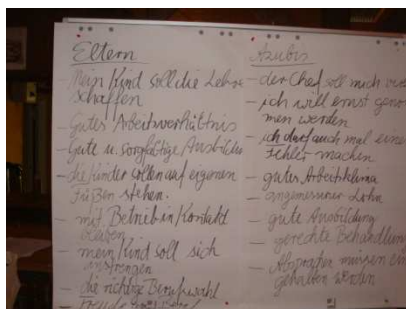 Eltern
- Mein Kind soll die Lehre
schaffen
- Gutes Arbeitsverhältnis
- Gute u. sorgfältige Ausbildung
- die Kinder sollen auf eigenen
Füßen stehen.
- mit Betrieb in Kontakt
bleiben
- mein Kind soll sich
anstrengen
- die richtige Berufswahl
Azubis
- der Chef soll mich
- ich will ernst genom
men werden
- ich darf auch mal einen
Fehler machen
- gutes Arbeitsklima
- angemessener Lohn
- gute Ausbildung
- gerechte Behandlung
- Absprachen müssen ein
gehalten werden